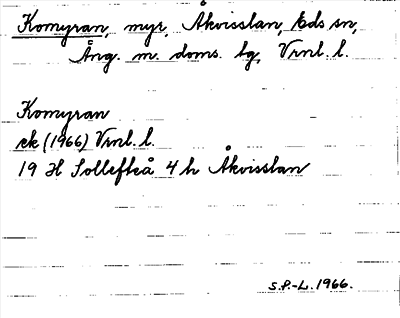 Komyran, myr, Åkvisslan, Eds sn,
Ång. m. doms. lg, Vrnl. l.
Komyran
ek (1966) Vrnl. l.
19 H Sollefteå 4 h Åkvisslan
S.P.-L. 1966.